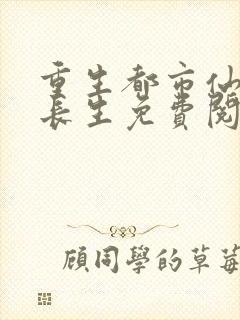 重生都市仙
長生免費閱
顧同學的草莓